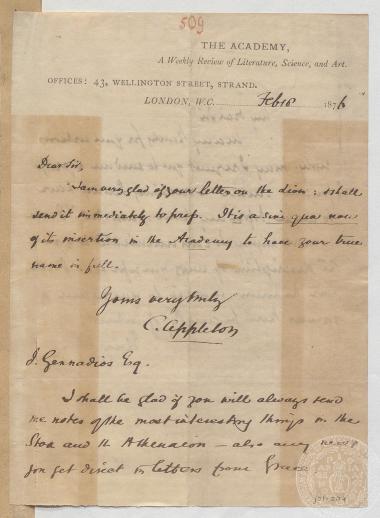 509
THE ACADEMY,
A Weekly Review of Literature, Science, and Art.
OFFICES: 43, WELLINGTON STREET, STRAND.
LONDON, W.C. Feb 18 1876
Dear Sir,
I am very glad of your letter on the : I shall
send it immediately to press. It is a sine qua non
of its insertion in the Academy to have your true
name in full.
Yours very truly
C. Appleton
J. Gennadios Esq.
I shall be glad if you will always send
me notes of the most interesting things in the
Stoa and the Athenaion – also any news
you get direct in letters from Greece